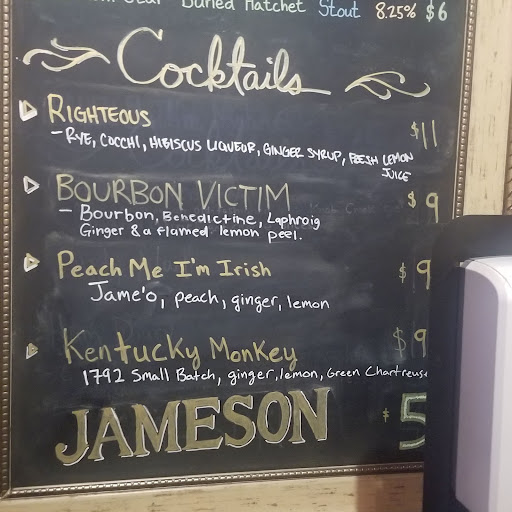 Buried Hatchet Stout 8.25% $6
Cocktails
RIGHTEOUS $11
- RYE, COCCHI, HIBISCUS LIQUEUR, GINGER SYRUP, FRESH LEMON
JUICE
BOURBON VICTIM $9
- Bourbon, Benedictine, Laphroig
Ginger & a flamed lemon peel.
Peach Me I'm Irish $9
Jame'o, peach, ginger, lemon
Kentucky Monkey $9
1792 Small Batch, ginger, lemon, Green Chartreuse
JAMESON $5